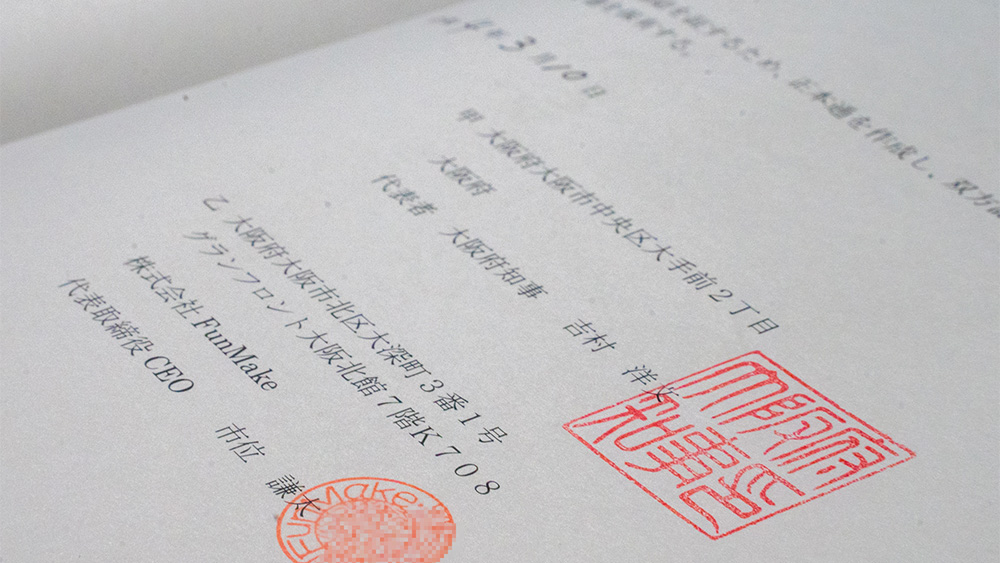 を証するため、正本通を作成し、双方
を保有する。
4年3月10日
甲 大阪府大阪市中央区大手前2丁目
大阪府
代表者 大阪府知事 吉村 洋文
乙 大阪府大阪市北区大深町3番1号
グランフロント大阪北館7階K708
株式会社FunMake
代表取締役CEO 市位 謙太
大阪府
知事印
FunMake